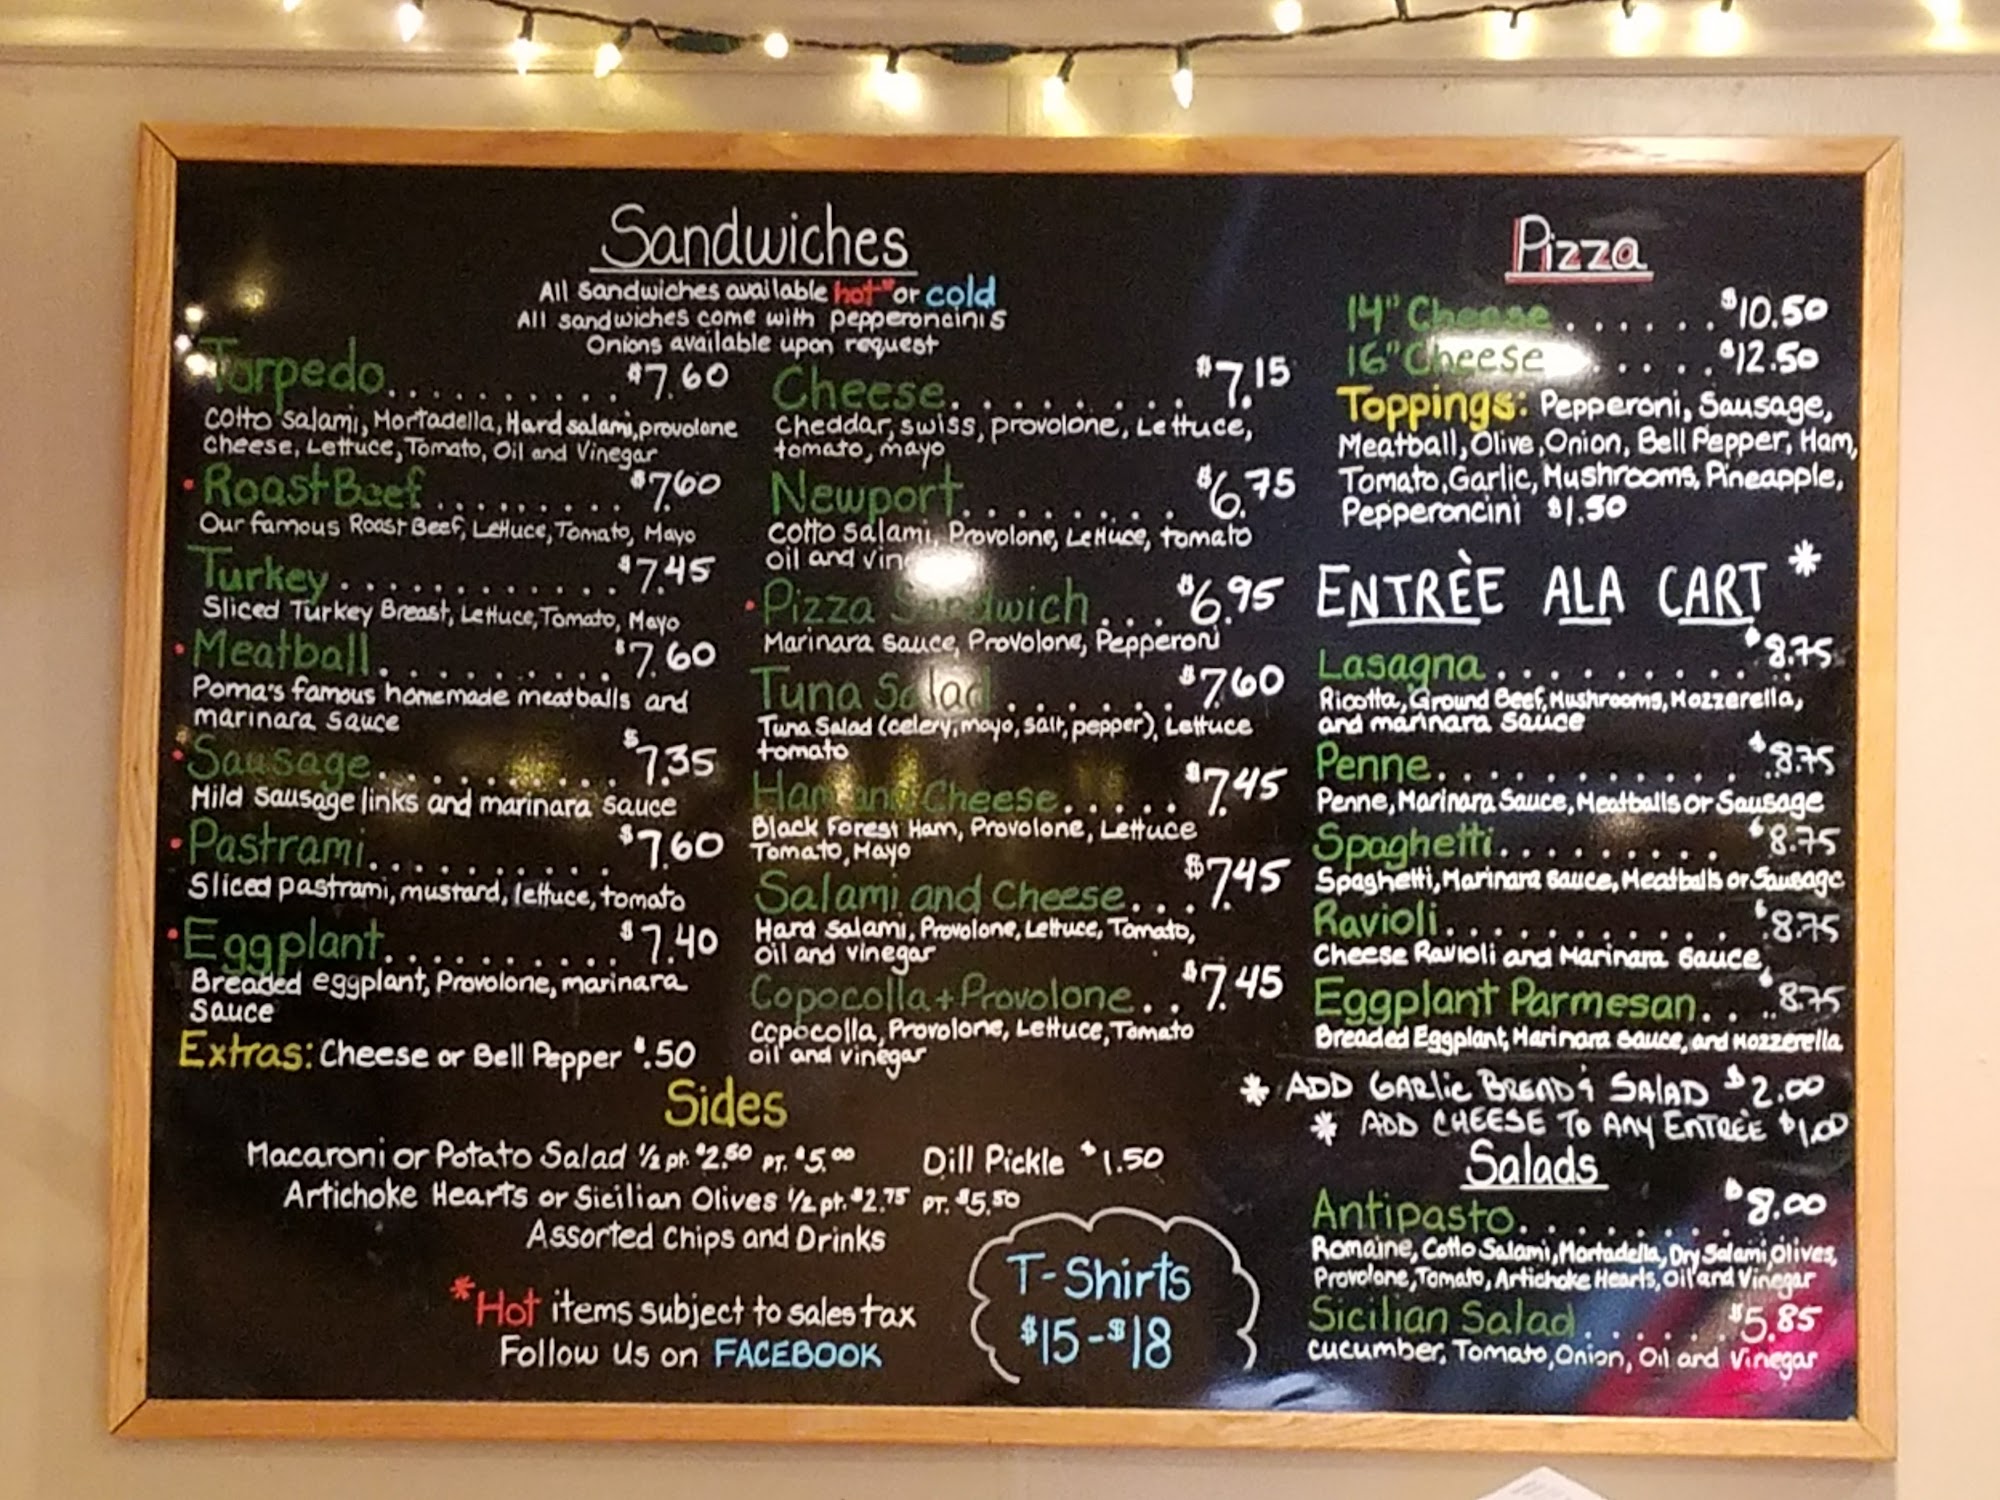 Sandwiches
All Sandwiches available hot* or cold
All sandwiches come with pepperoncinis
Onions available upon request
Torpedo.......... $7.60
Cotto salami, Mortadella, Hard salami, provolone
Cheese, Lettuce, Tomato, Oil and Vinegar
• Roast Beef......... $7.60
Our famous Roast Beef, Lettuce, Tomato, Mayo
Turkey............ $7.45
Sliced Turkey Breast, Lettuce, Tomato, Mayo
• Meatball.......... $7.60
Poma's famous homemade meatballs and
marinara sauce
• Sausage.......... $7.35
Mild Sausage links and marinara sauce
• Pastrami.......... $7.60
Sliced pastrami, mustard, lettuce, tomato
• Eggplant.......... $7.40
Breaded eggplant, Provolone, marinara
Sauce
Extras: Cheese or Bell Pepper $.50
Cheese........ $7.15
Cheddar, swiss, provolone, Lettuce,
tomato, mayo
Newport........ $6.75
Cotto salami, Provolone, Lettuce, tomato
oil and vin
• Pizza Sandwich... $6.95
Marinara sauce, Provolone, Pepperoni
Tuna Salad....... $7.60
Tuna Salad (celery, mayo, salt, pepper), Lettuce
tomato
Ham and Cheese..... $7.45
Black Forest Ham, Provolone, Lettuce
Tomato, Mayo
Salami and Cheese... $7.45
Hard Salami, Provolone, Lettuce, Tomato,
Oil and vinegar
Copocolla + Provolone.. $7.45
Copocolla, Provolone, Lettuce, Tomato
oil and vinegar
Sides
Macaroni or Potato Salad 1/2 pt. $2.50 PT. $5.00 Dill Pickle $1.50
Artichoke Hearts or Sicilian Olives 1/2 pt. $2.75 PT. $5.50
Assorted Chips and Drinks
*Hot items subject to sales tax
Follow us on FACEBOOK
T-Shirts
$15-$18
Pizza
14" Cheese...... $10.50
16" Cheese...... $12.50
Toppings: Pepperoni, Sausage,
Meatball, Olive, Onion, Bell Pepper, Ham,
Tomato, Garlic, Mushrooms, Pineapple,
Pepperoncini $1.50
ENTRÈE ALA CART *
Lasagna.......... $8.75
Ricotta, Ground Beef, Mushrooms, Mozzerella,
and marinara sauce
Penne............ $8.75
Penne, Marinara Sauce, Meatballs or Sausage
Spaghetti......... $8.75
Spaghetti, Marinara sauce, Meatballs or Sausage
Ravioli........... $8.75
Cheese Ravioli and Marinara Sauce
Eggplant Parmesan.... $8.75
Breaded Eggplant, Marinara sauce, and Mozzerella
* ADD GARLIC BREAD & SALAD $2.00
* ADD CHEESE TO ANY ENTRÈE $1.00
Salads
Antipasto........ $8.00
Romaine, Cotto Salami, Mortadella, Dry Salami, Olives,
Provolone, Tomato, Artichoke Hearts, Oil and Vinegar
Sicilian Salad...... $5.85
Cucumber, Tomato, Onion, Oil and Vinegar